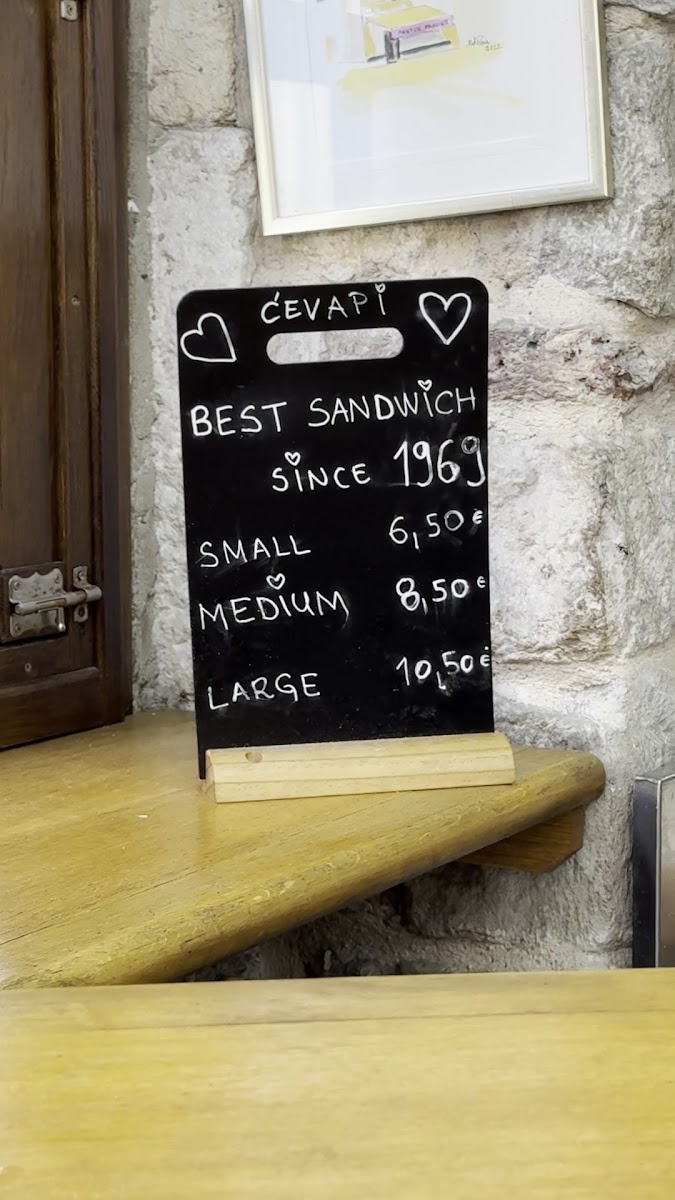 ĆEVAPI
BEST SANDWICH
SINCE 1969
SMALL 6,50 €
MEDIUM 8,50 €
LARGE 10,50 €